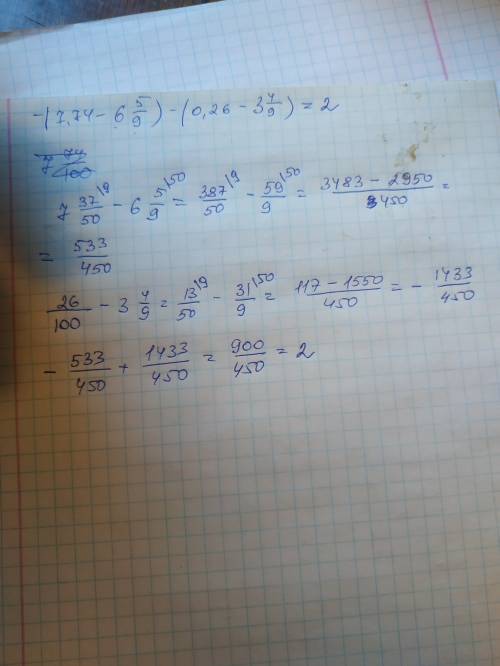 -(7,74 - 6 5/9) - (0,26 - 3 4/9) = 2
7 74/100
7 37/50 |9 - 6 5/9 |50 = 387/50 |9 - 59/9 |50 = (3483 - 2950)/450 =
= 533/450
26/100 - 3 4/9 = 13/50 |9 - 31/9 |50 = (117 - 1550)/450 = - 1433/450
- 533/450 + 1433/450 = 900/450 = 2